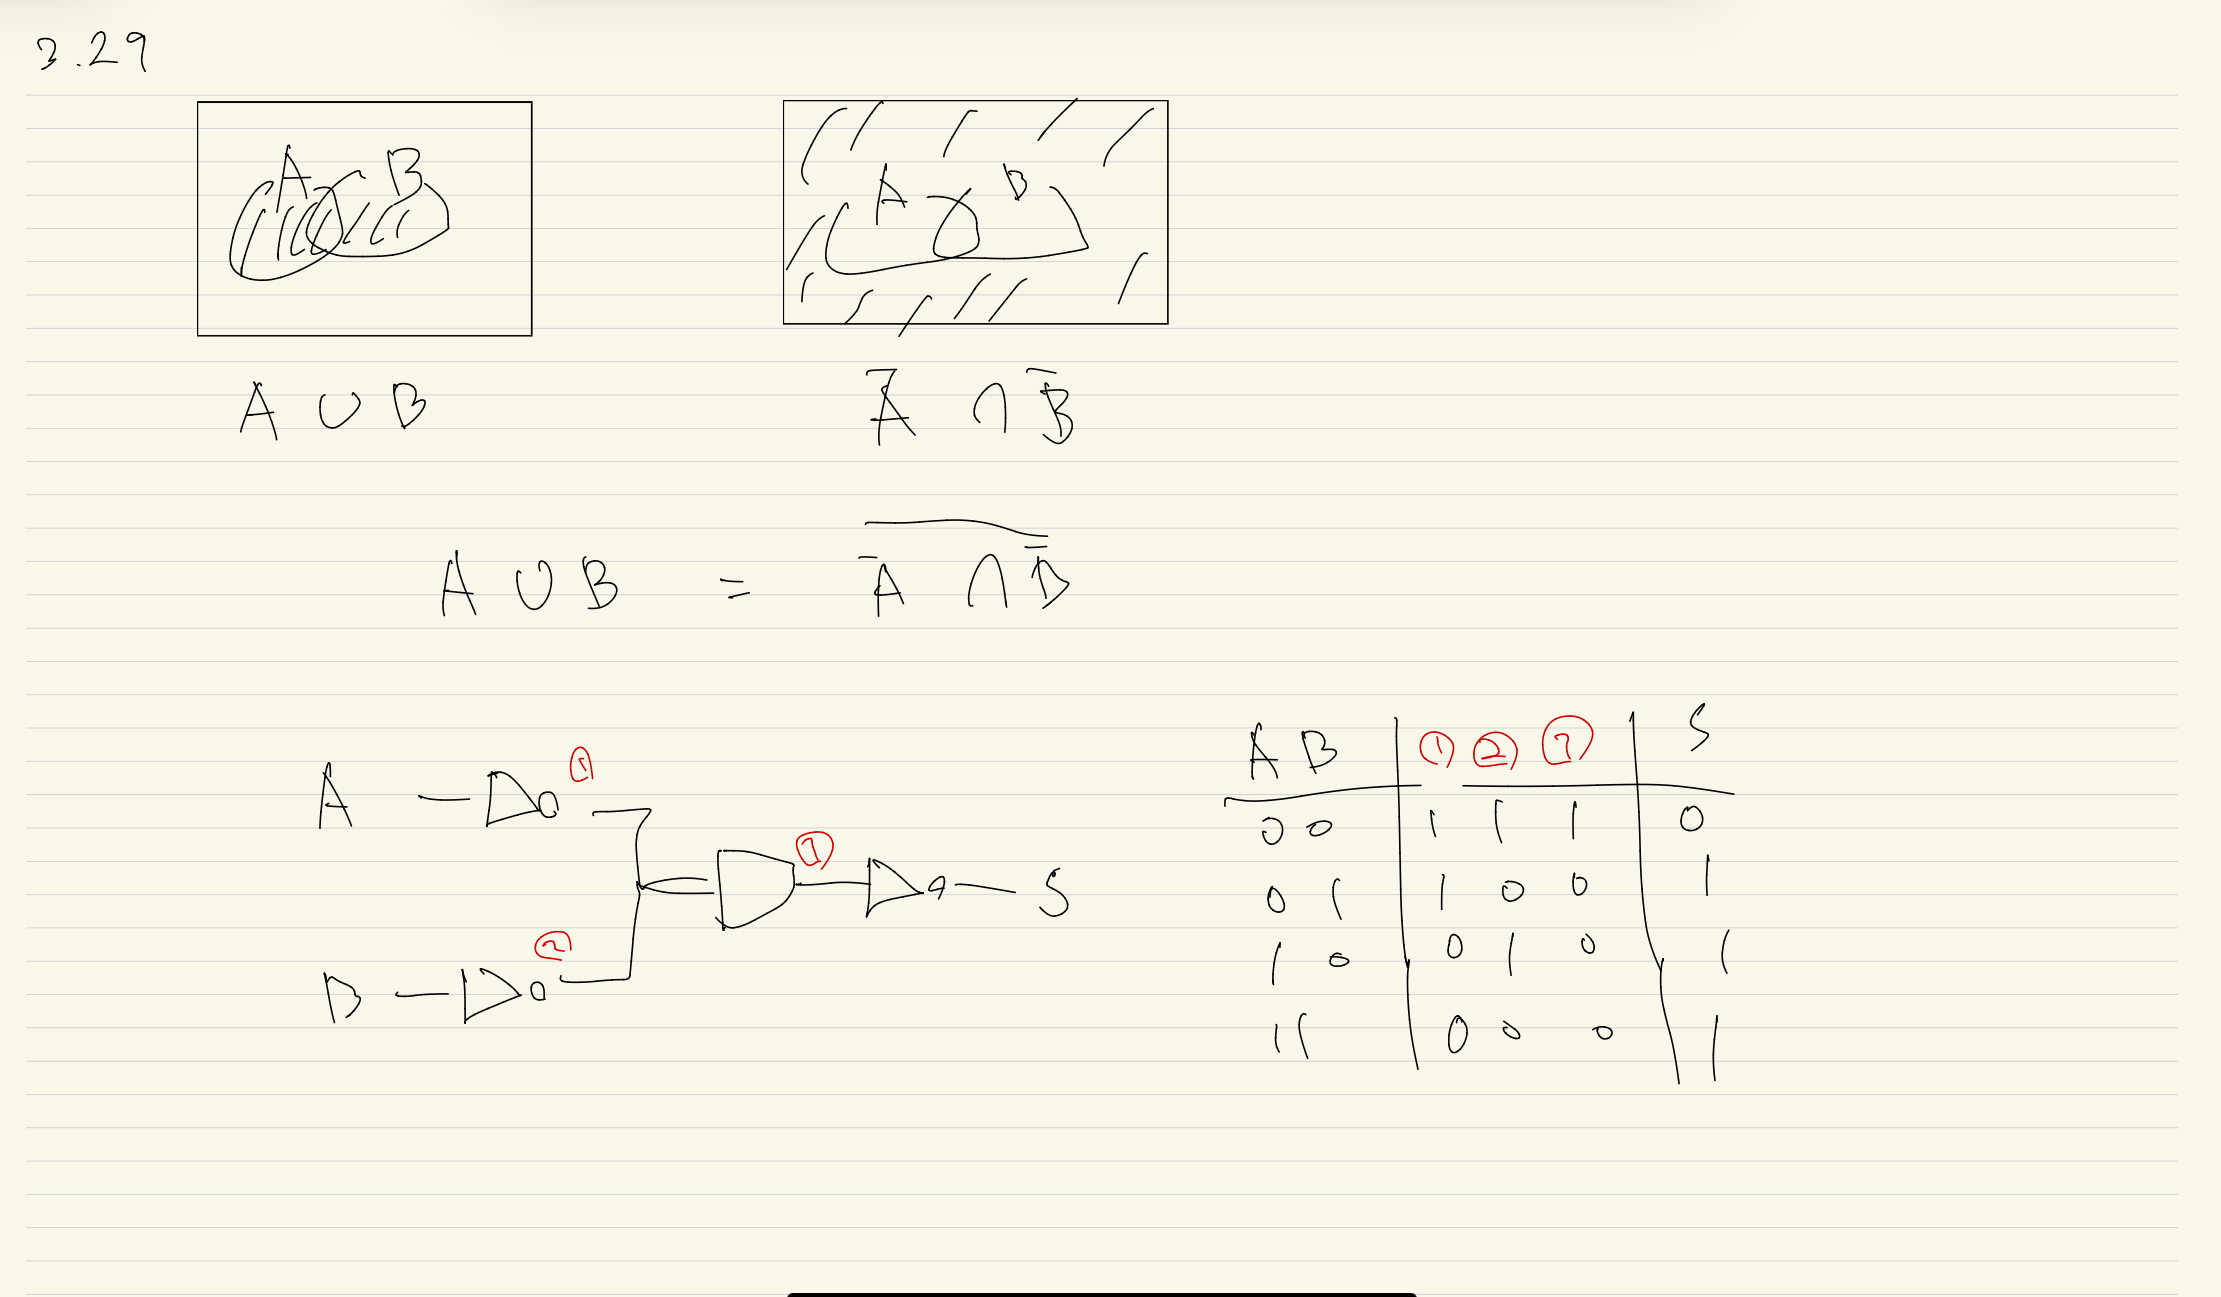 3.29
A B
A B
A ∪ B
A̅ ∩ B̅
A ∪ B = \overline{A̅ ∩ B̅}
A ① ③ S
B ②
A B | ① ② ③ | S
0 0 | 1 1 1 | 0
0 1 | 1 0 0 | 1
1 0 | 0 1 0 | 1
1 1 | 0 0 0 | 1